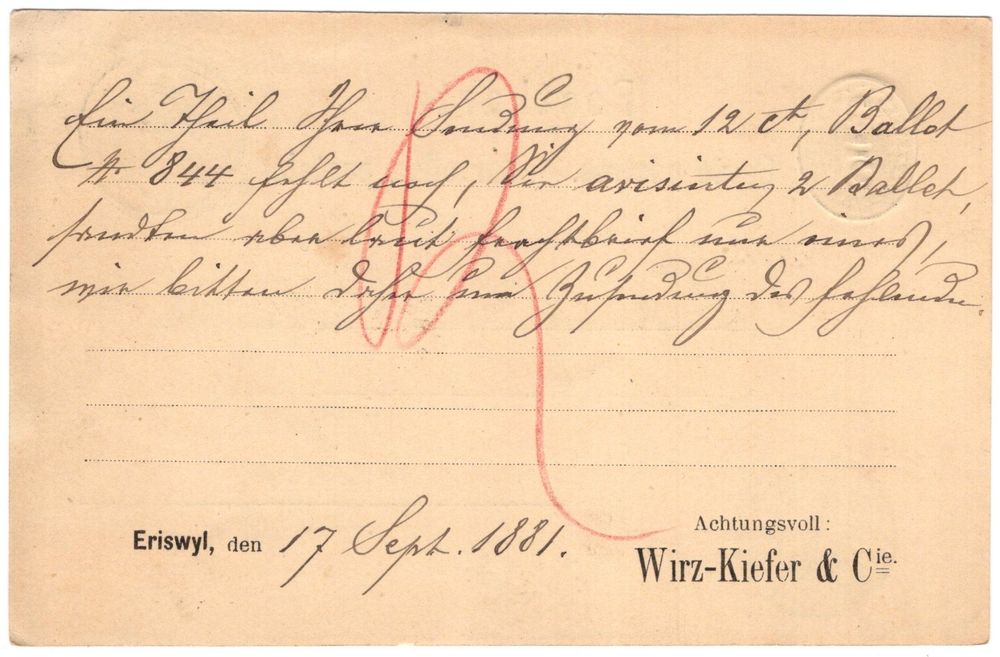 Ein Theil Ihrer Sendung vom 12 ct, Ballot
№ 844 fehlt noch, Sie avisirten 2 Ballot,
sandten aber laut Frachtbrief nur eines,
wir bitten daher um Zusendung des fehlenden.
Eriswyl, den 17 Sept. 1881.
Achtungsvoll:
Wirz-Kiefer & Cie.